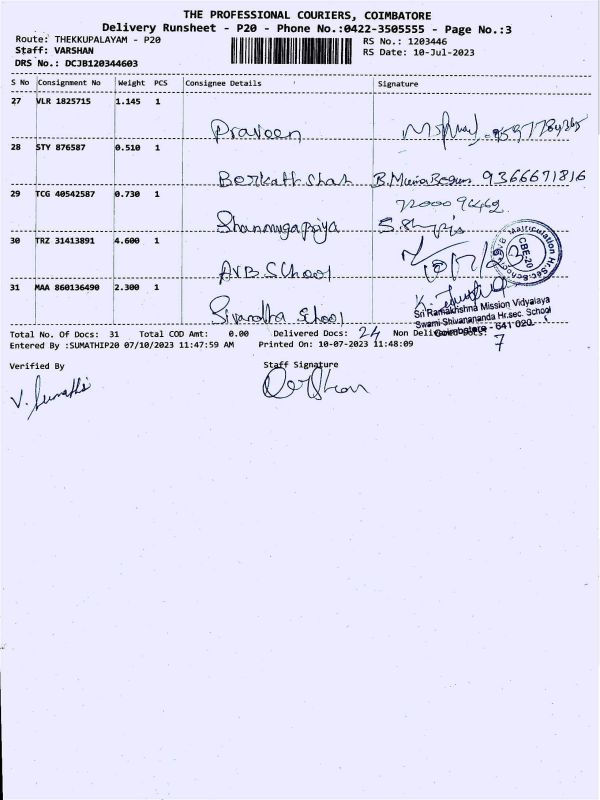 THE PROFESSIONAL COURIERS, COIMBATORE
Delivery Runsheet - P20 - Phone No.:0422-3505555 - Page No.:3
Route: THEKKUPALAYAM - P20
RS No.: 1203446
Staff: VARSHAN
RS Date: 10-Jul-2023
DRS No.: DCJB120344603
S No Consignment No Weight PCS Consignee Details Signature
27 VLR 1825715 1.145 1
Praveen
28 STY 876587 0.510 1
Berkath shah B.MuinaBegum 9366671816
29 TCG 40542587 0.730 1
Shanmugapriya
30 TRZ 31413891 4.600 1
AVB School 10/7/23
31 MAA 860136490 2.300 1
Sivanandha School
Matriculation Hr.Sec.School
CBE-20
Sri Ramakrishna Mission Vidyalaya
Swami Shivanananda Hr.sec. School
Coimbatore - 641 020.
Total No. Of Docs: 31 Total COD Amt: 0.00 Delivered Docs: 24 Non Delivered Docs: 7
Entered By :SUMATHIP20 07/10/2023 11:47:59 AM Printed On: 10-07-2023 11:48:09
Verified By Staff Signature
V. Sumathi